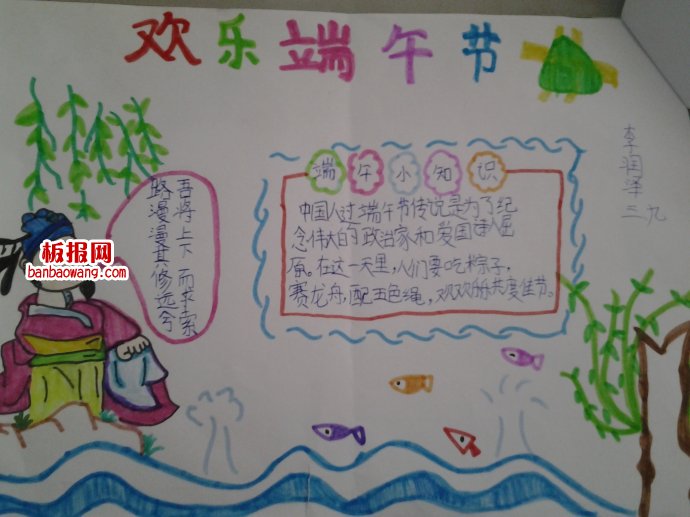 欢乐端午节
李润泽
三九
端午小知识
中国人过端午节传说是为了纪
念伟大的政治家和爱国诗人屈
原。在这一天里，人们要吃粽子，
赛龙舟，配五色绳，欢欢乐乐共度佳节。
路漫漫其修远兮
吾将上下而求索
板报网
banbaowang.com